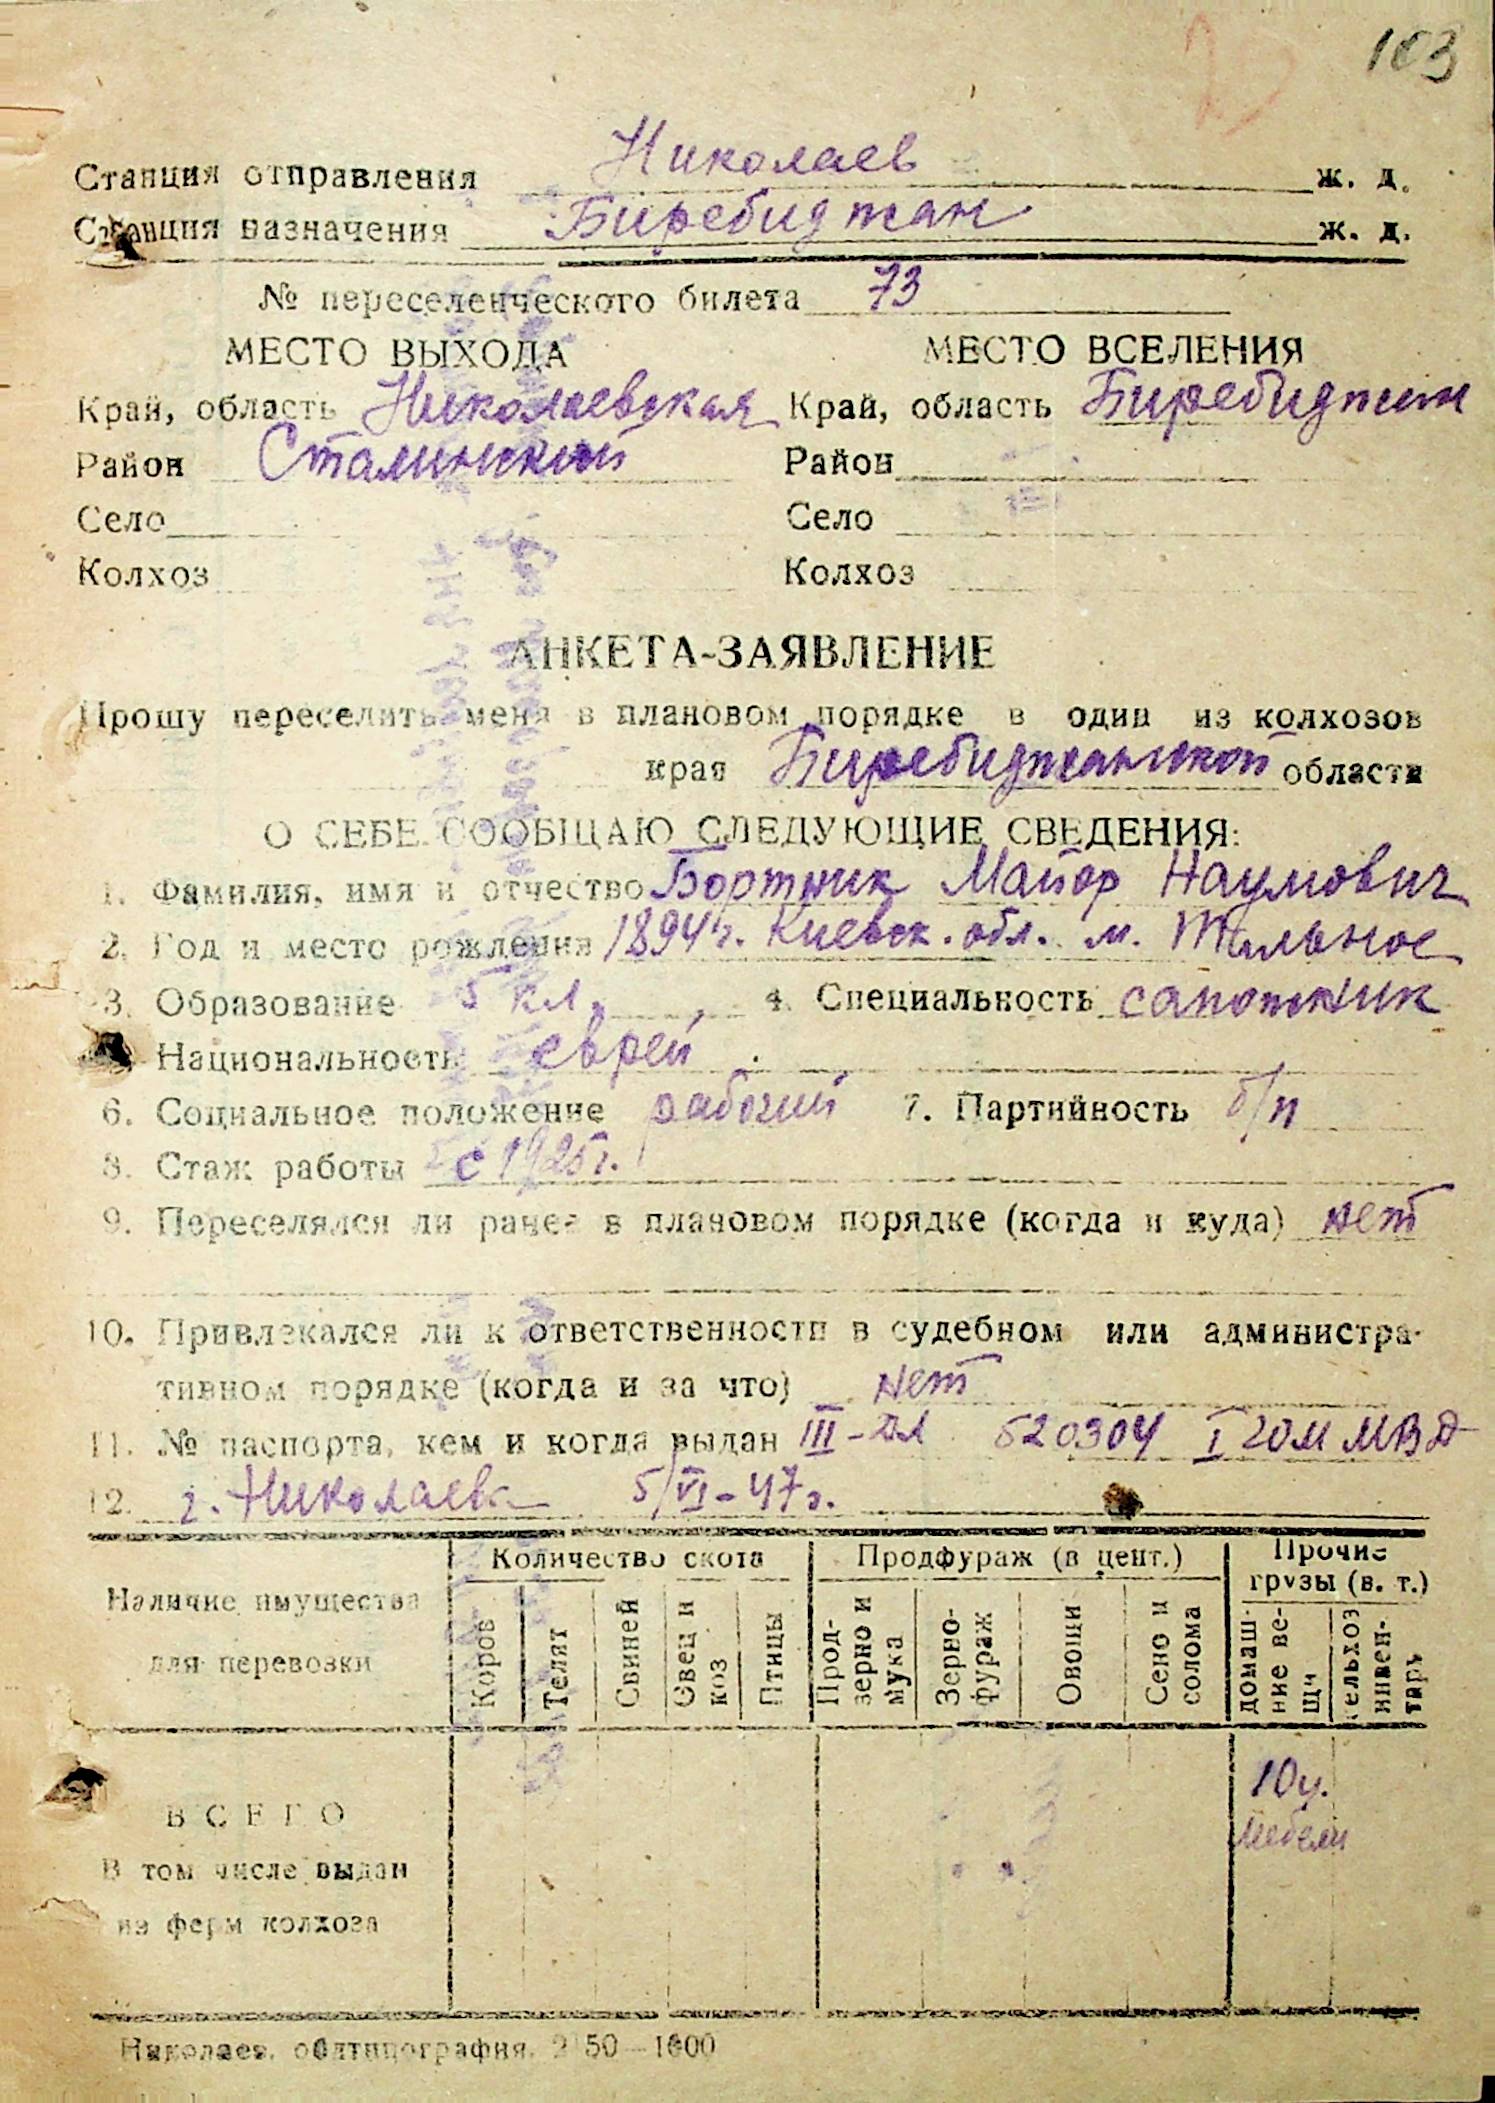 103
Станция отправления Николаев ж. д.
Станция назначения Биребиджан ж. д.
№ переселенческого билета 73
МЕСТО ВЫХОДА МЕСТО ВСЕЛЕНИЯ
Край, область Николаевская Край, область Биребиджан
Район Сталинский Район
Село Село
Колхоз Колхоз
АНКЕТА-ЗАЯВЛЕНИЕ
Прошу переселить меня в плановом порядке в один из колхозов
края Биребиджанской области
О СЕБЕ СООБЩАЮ СЛЕДУЮЩИЕ СВЕДЕНИЯ:
1. Фамилия, имя и отчество Бортник Майор Наумович
2. Год и место рождения 1894 г. Киевск. обл. м. Тальное
3. Образование 5 кл. 4. Специальность сапожник
Национальность еврей
6. Социальное положение рабочий 7. Партийность б/п
8. Стаж работы с 1925 г.
9. Переселялся ли ранее в плановом порядке (когда и куда) нет
10. Привлекался ли к ответственности в судебном или администра-
тивном порядке (когда и за что) нет
11. № паспорта, кем и когда выдан III- 520304 I ГОМ МВД
12. г. Николаев 5/VI-47г.
Наличие имущества для перевозки Количество скота Продфураж (в цент.) Прочие грузы (в. т.)
Коров Телят Свиней Овец и коз Птицы Прод-зерно и мука Зерно-фураж Овощи Сено и солома домаш-ние ве-щи сельхоз инвен-тарь
ВСЕГО 10 ц.
мебели
В том числе выдан
из ферм колхоза
Николаев, облтипография. 2150—1600